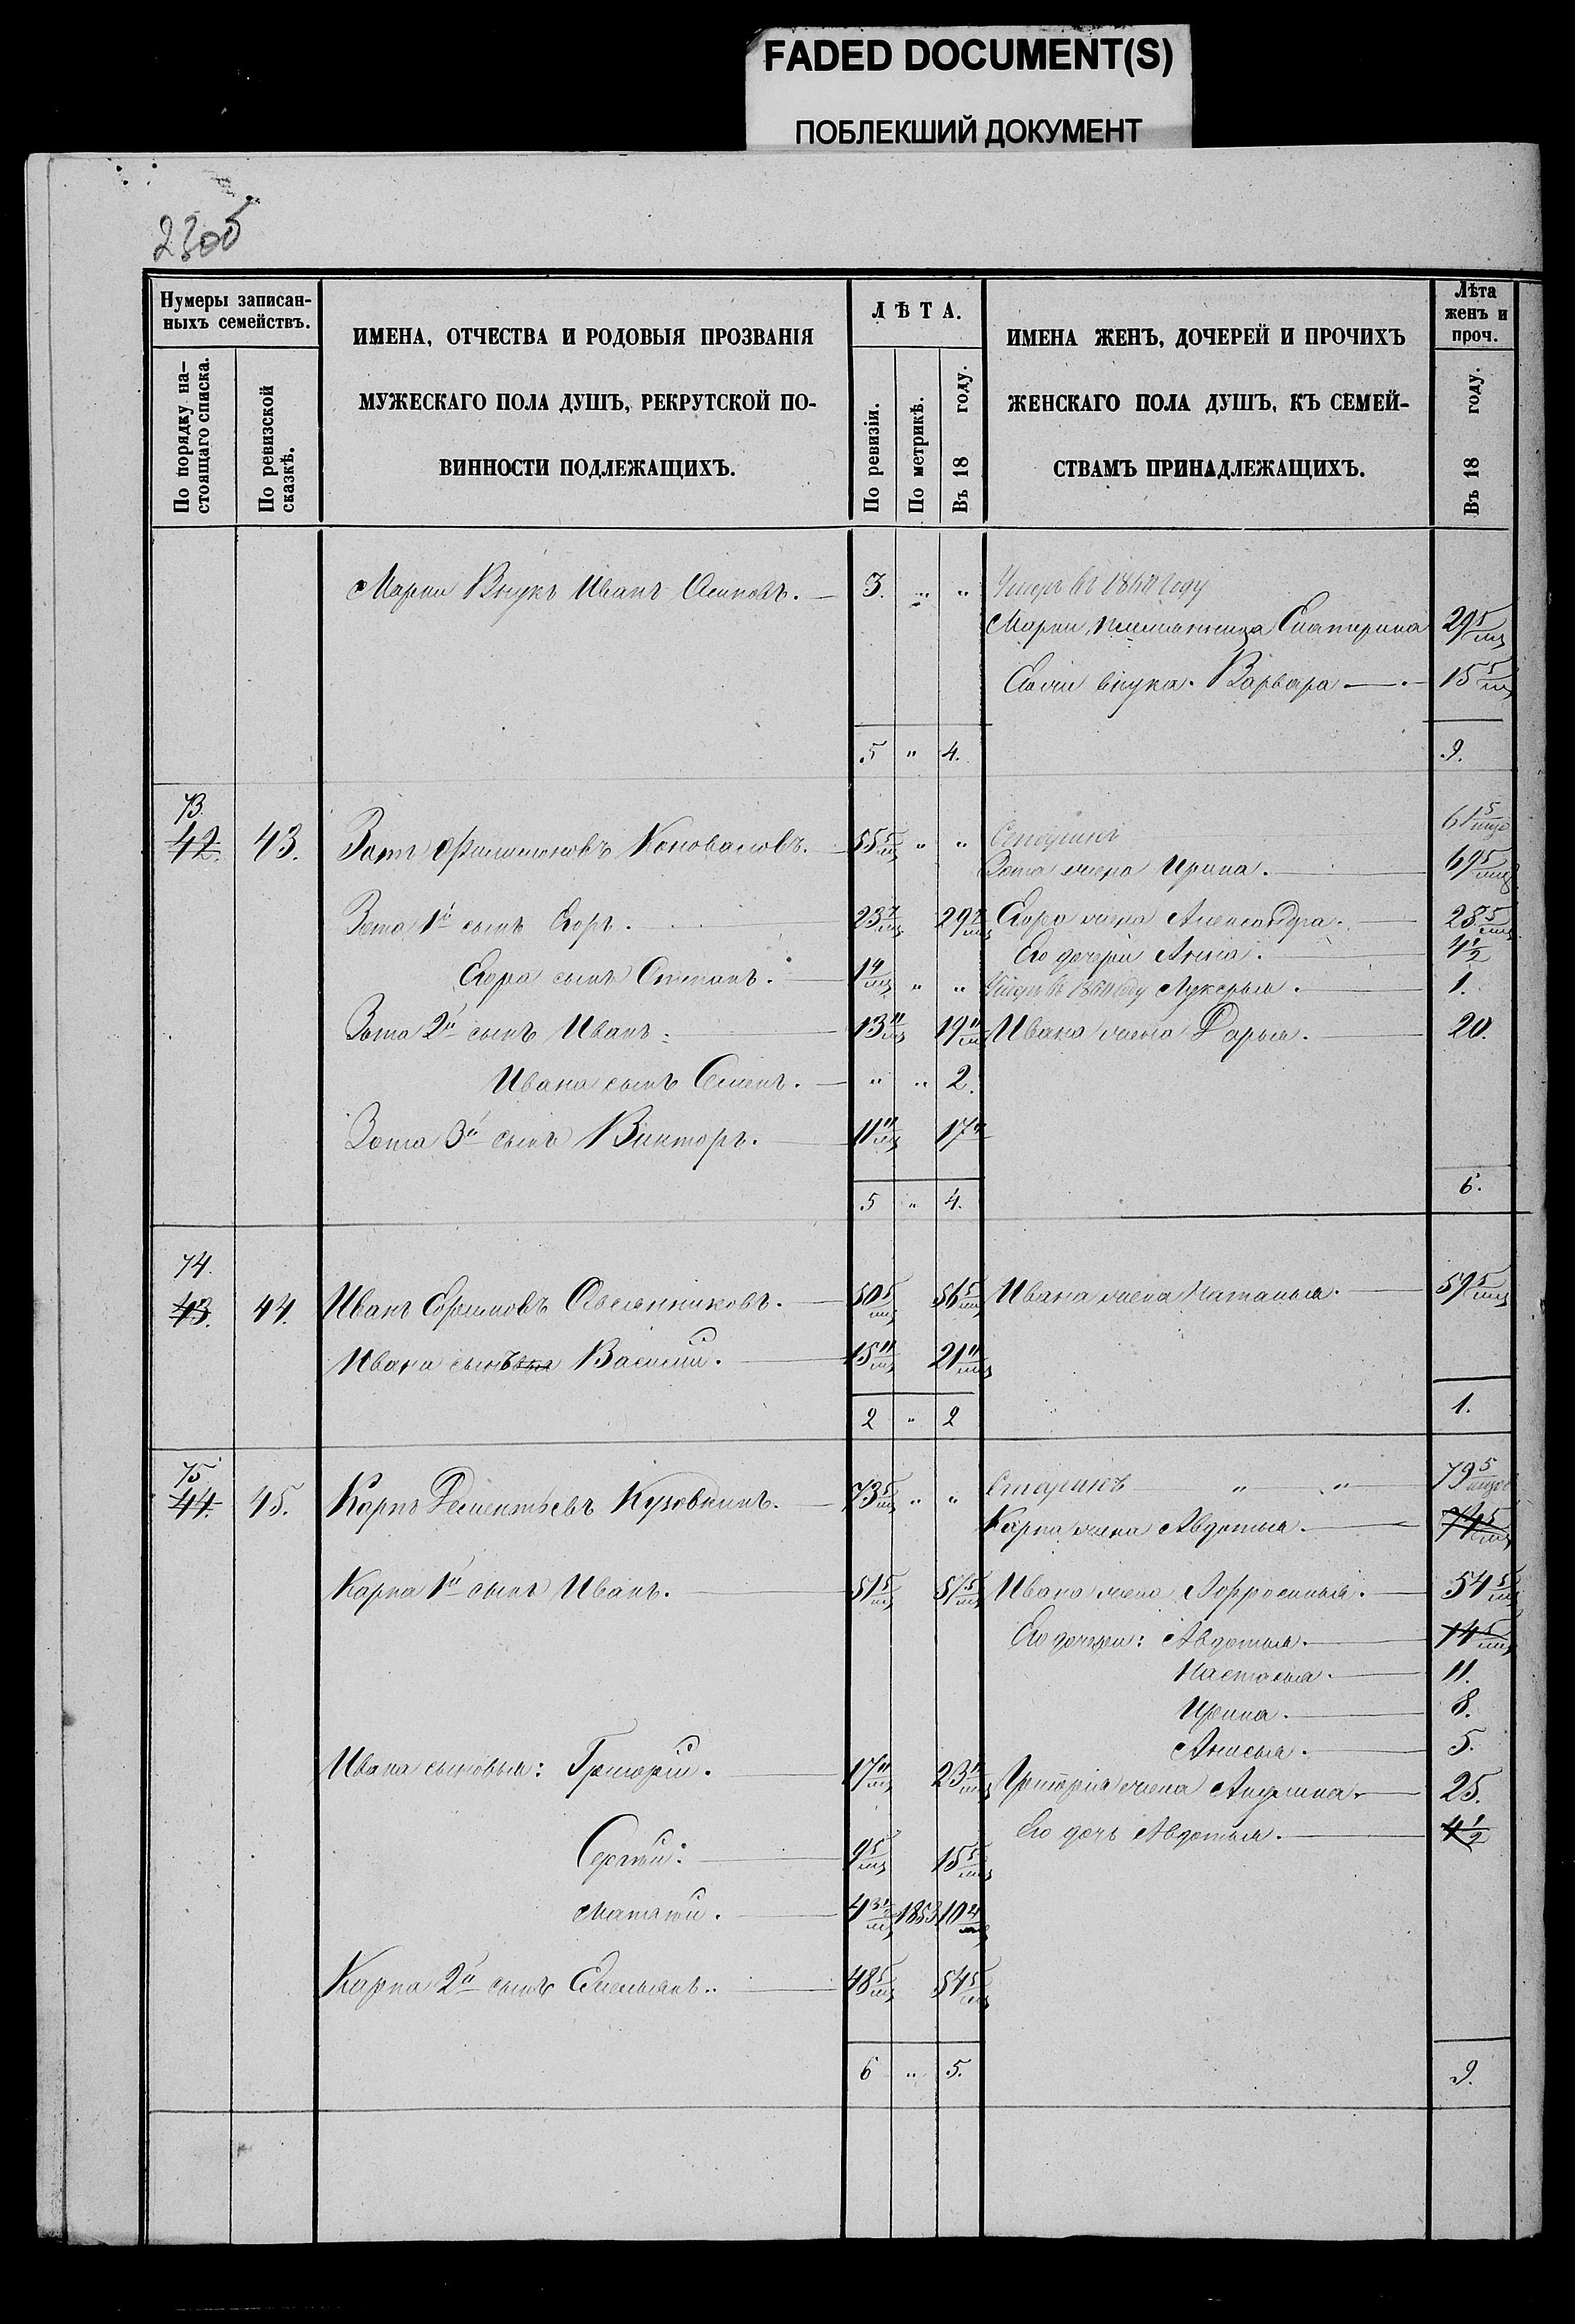 FADED DOCUMENT(S)
ПОБЛЕКШИЙ ДОКУМЕНТ
2305
Нумеры записан-
ныхъ семействъ.
По порядку на-
стоящаго списка.
По ревизской
сказкѣ.
ИМЕНА, ОТЧЕСТВА И РОДОВЫЯ ПРОЗВАНІЯ
МУЖЕСКАГО ПОЛА ДУШЪ, РЕКРУТСКОЙ ПО-
ВИННОСТИ ПОДЛЕЖАЩИХЪ.
ЛѢТА.
По ревизіи.
По метрикѣ.
Въ 18 году.
ИМЕНА ЖЕНЪ, ДОЧЕРЕЙ И ПРОЧИХЪ
ЖЕНСКАГО ПОЛА ДУШЪ, КЪ СЕМЕЙ-
СТВАМЪ ПРИНАДЛЕЖАЩИХЪ.
Лѣта
женъ и
проч.
Въ 18 году.
Марки Внукъ Иванъ Осиповъ. 3. " " Умеръ въ 1860 году
Марки племянница Екатерина 29 5/мц
внука Варвара 15 5/мц
5 " 4. 9.
73.
42. 43. Зотъ Филимоновъ Коноваловъ. 55 5/мц " " 61 5/мцо
Зота жена Ирина. 69 5/мц
Зота 1й сынъ Егоръ. 23 7/мц 29 7/мц Егора жена Александра. 28 5/мц
Его дочери Анна. 4 1/2
Егора сынъ Степанъ. 1 4/мц " " Умеръ въ 1860 году Лукерья. 1.
Зота 2й сынъ Иванъ. 13 11/мц 19 11/мц Ивана жена Дарья. 20.
Ивана сынъ Семенъ. " " 2.
Зота 3й сынъ Викторъ. 11 11/мц 17 11
5 " 4. 6.
74.
43. 44. Иванъ Ефимовъ Овсянниковъ. 50 5/мц 56 5/мц Ивана жена Наталья. 59 5/мц
Ивана сынъ Василій. 15 11/мц 21 11/мц
2 " 2 1.
75
44. 45. Карпъ Дементьевъ Кузовкинъ. 73 5/мц " " " " 79 5
Карпа жена Авдотья. 74 5/мц
Карпа 1й сынъ Иванъ. 51 5/мц 57 5/мц Ивана жена Афросинья. 54 5/мц
Его дочери: Авдотья. 14 5/мц
Настасья. 11.
Ирина. 8.
Анисья. 5.
Ивана сыновья: Григорій. 17 11/мц 23 11/мц Григорія жена Акулина. 25.
Его дочь Авдотья. 4 1/2
Сергѣй. 9 5/мц 15 5/мц
Матвѣй. 4 1853 10 4
Карпа 2й сынъ Емельянъ. 48 5/мц 54 5/мц
6 " 5. 9.